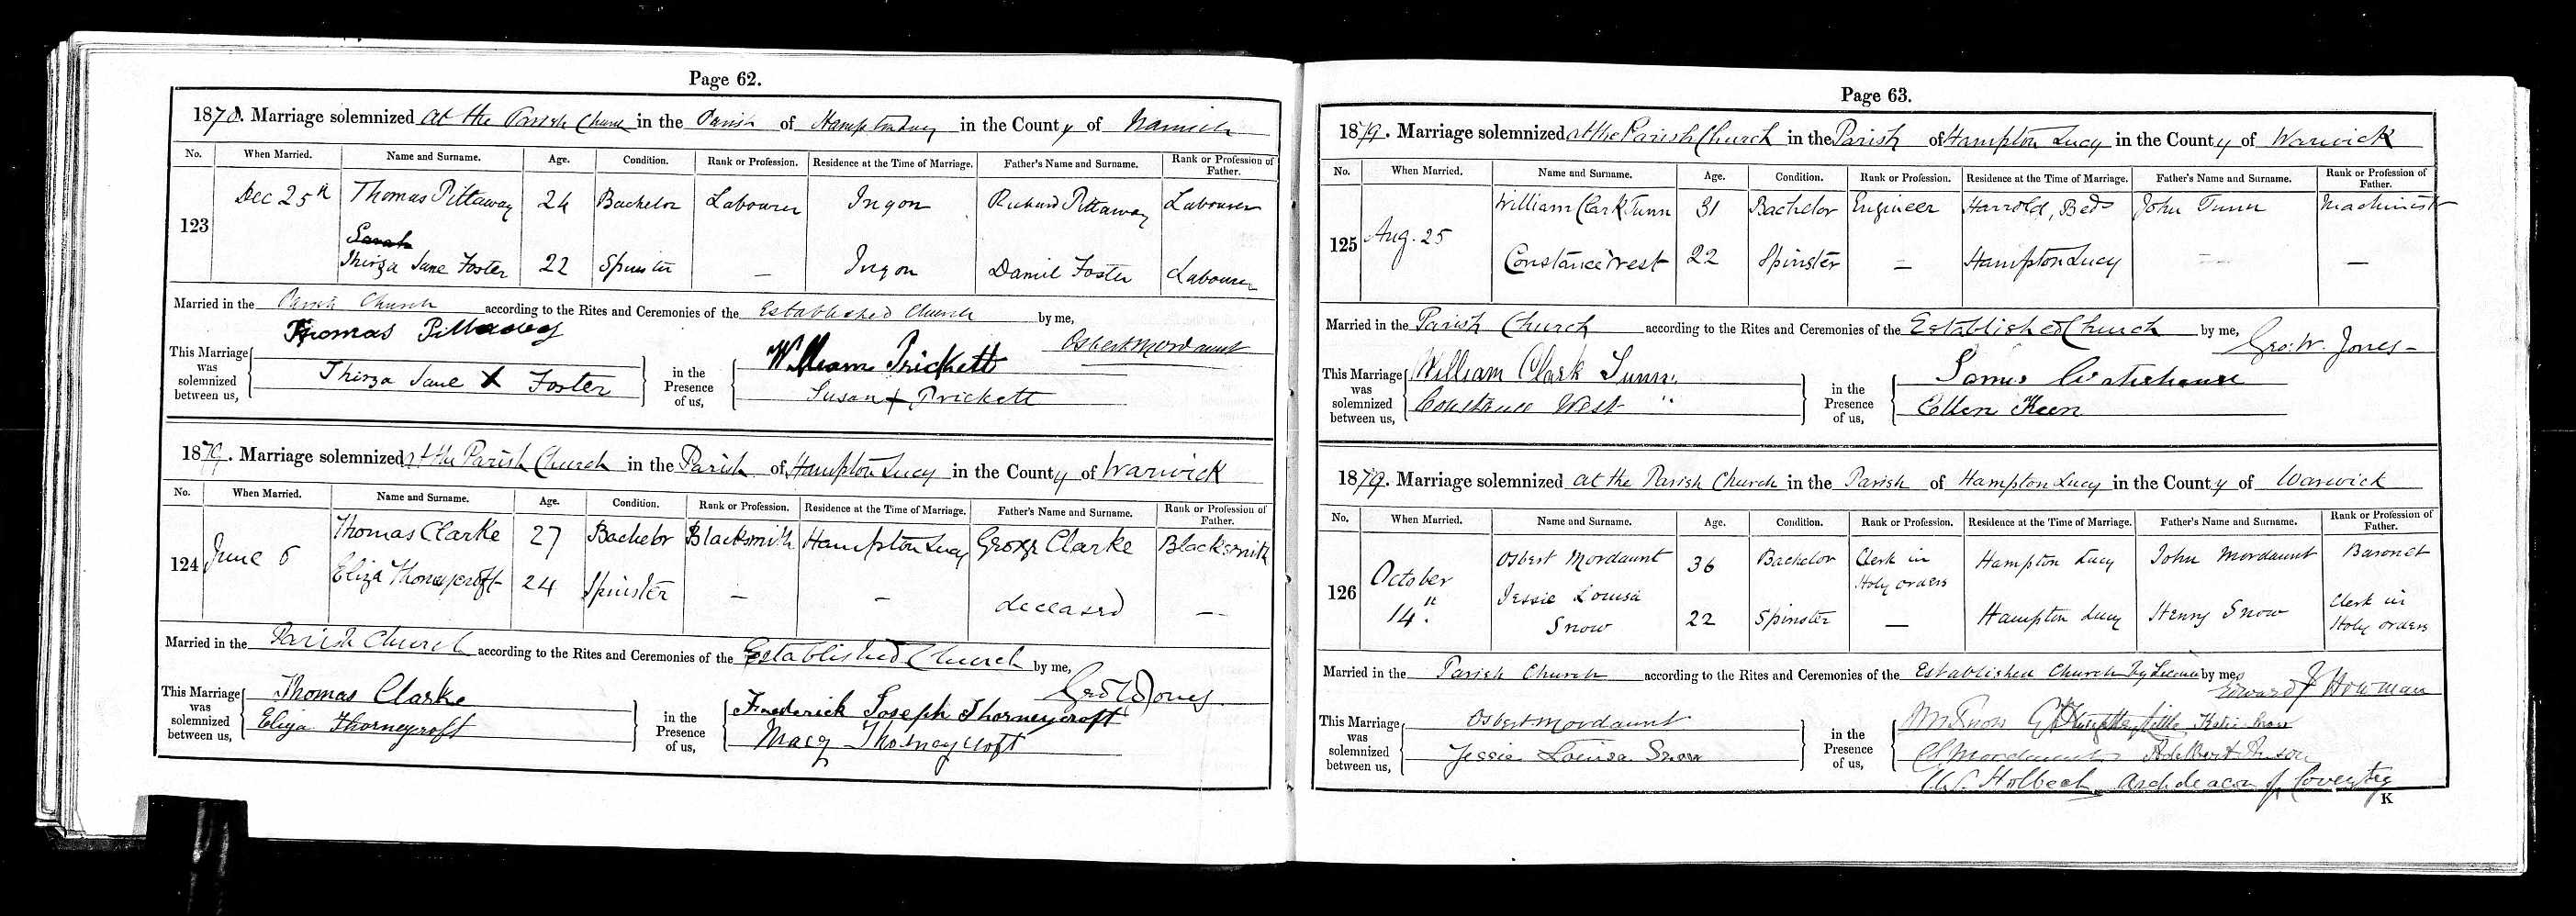 Page 62.
1878. Marriage solemnized at the Parish Church in the Parish of Hampton Lucy in the County of Warwick
No. When Married. Name and Surname. Age. Condition. Rank or Profession. Residence at the Time of Marriage. Father's Name and Surname. Rank or Profession of Father.
123 Dec 25th Thomas Pittaway 24 Bachelor Labourer Ingon Richard Pittaway Labourer
Sarah
Thirza Jane Foster 22 Spinster — Ingon Daniel Foster Labourer
Married in the Parish Church according to the Rites and Ceremonies of the Established Church by me,
Osbert Mordaunt
This Marriage was solemnized between us, Thomas Pittaway in the Presence of us, William Prickett
Thirza Jane X Foster Susan X Prickett
1879. Marriage solemnized at the Parish Church in the Parish of Hampton Lucy in the County of Warwick
No. When Married. Name and Surname. Age. Condition. Rank or Profession. Residence at the Time of Marriage. Father's Name and Surname. Rank or Profession of Father.
124 June 6 Thomas Clarke 27 Bachelor Blacksmith Hampton Lucy George Clarke Blacksmith
Eliza Thorneycroft 24 Spinster — — deceased —
Married in the Parish Church according to the Rites and Ceremonies of the Established Church by me,
Geo W Jones
This Marriage was solemnized between us, Thomas Clarke in the Presence of us, Frederick Joseph Thorneycroft
Eliza Thorneycroft Mary Thorneycroft
Page 63.
1879. Marriage solemnized at the Parish Church in the Parish of Hampton Lucy in the County of Warwick
No. When Married. Name and Surname. Age. Condition. Rank or Profession. Residence at the Time of Marriage. Father's Name and Surname. Rank or Profession of Father.
125 Aug. 25 William Clark Tunn 31 Bachelor Engineer Harrold, Beds John Tunn Machinist
Constance West 22 Spinster — Hampton Lucy — —
Married in the Parish Church according to the Rites and Ceremonies of the Established Church by me,
Geo: W. Jones —
This Marriage was solemnized between us, William Clark Tunn in the Presence of us, Waterhouse
Constance West Ellen Keen
1879. Marriage solemnized at the Parish Church in the Parish of Hampton Lucy in the County of Warwick
No. When Married. Name and Surname. Age. Condition. Rank or Profession. Residence at the Time of Marriage. Father's Name and Surname. Rank or Profession of Father.
126 October 14th. Osbert Mordaunt 36 Bachelor Clerk in Holy orders Hampton Lucy John Mordaunt Baronet
Jessie Louisa Snow 22 Spinster — Hampton Lucy Henry Snow Clerk in Holy orders
Married in the Parish Church according to the Rites and Ceremonies of the Established Church by License by me,
Edward J Howman
This Marriage was solemnized between us, Osbert Mordaunt in the Presence of us, Snow
Jessie Louisa Snow Mordaunt Adelbert Anson
Holbech Archdeacon of Coventry
K